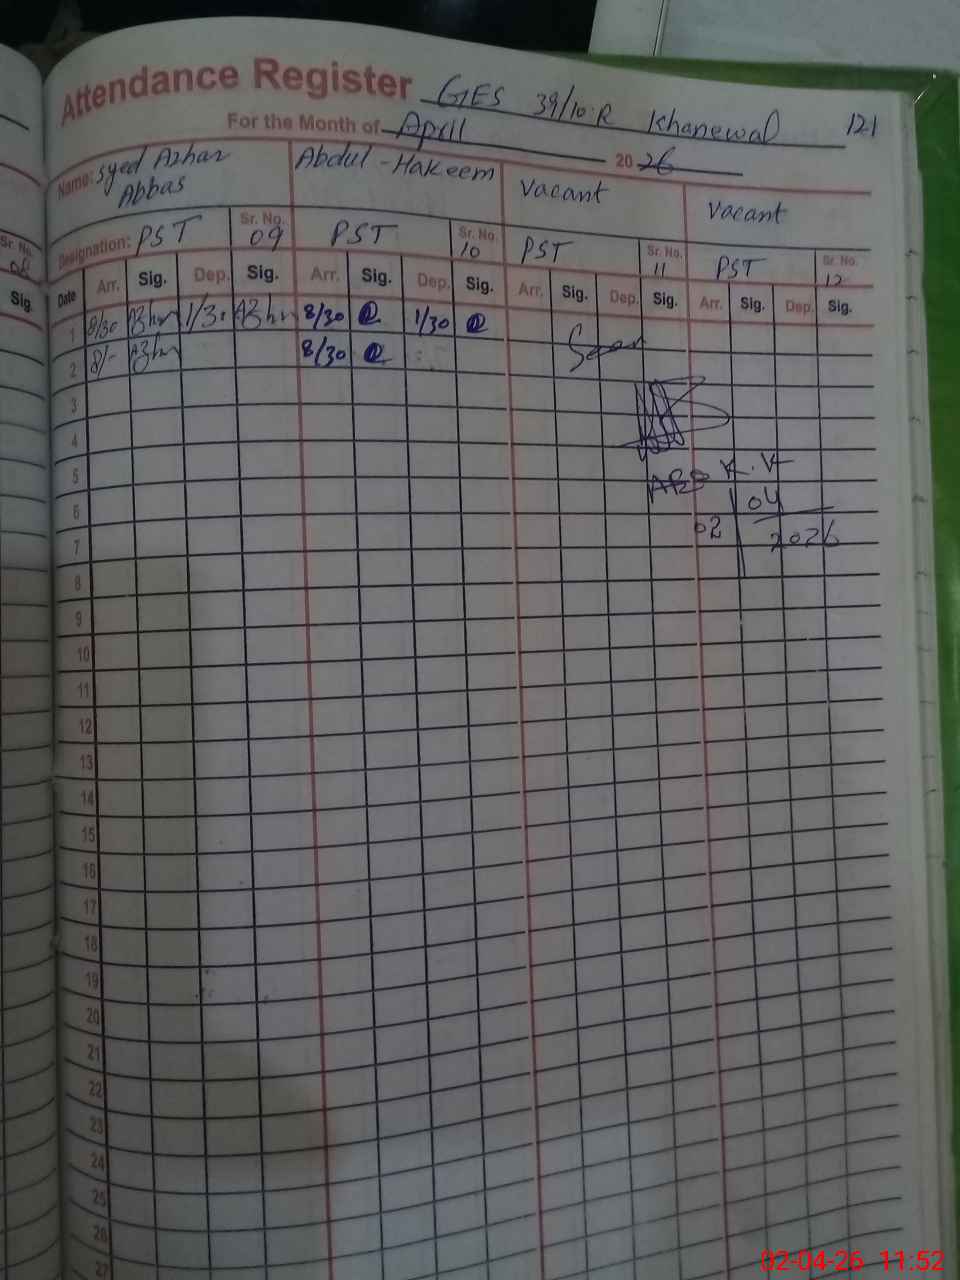 Attendance Register GES 39/10.R Khanewal 121
For the Month of April 2026
Name: Syed Azhar Abbas Abdul-Hakeem Vacant Vacant
Designation: PST Sr. No. 09 PST Sr. No. 10 PST Sr. No. 11 PST Sr. No. 12
Date Arr. Sig. Dep. Sig. Arr. Sig. Dep. Sig. Arr. Sig. Dep. Sig. Arr. Sig. Dep. Sig.
1 8/30 Azhar 1/30 Azhar 8/30 1/30
2 8/- Azhar 8/30 Seen
3
4
5 K.K
6 04
7 02 2026
8
9
10
11
12
13
14
15
16
17
18
19
20
21
22
23
24
25
26
27
Sr. No.
Sig.
02-04-26 11:52